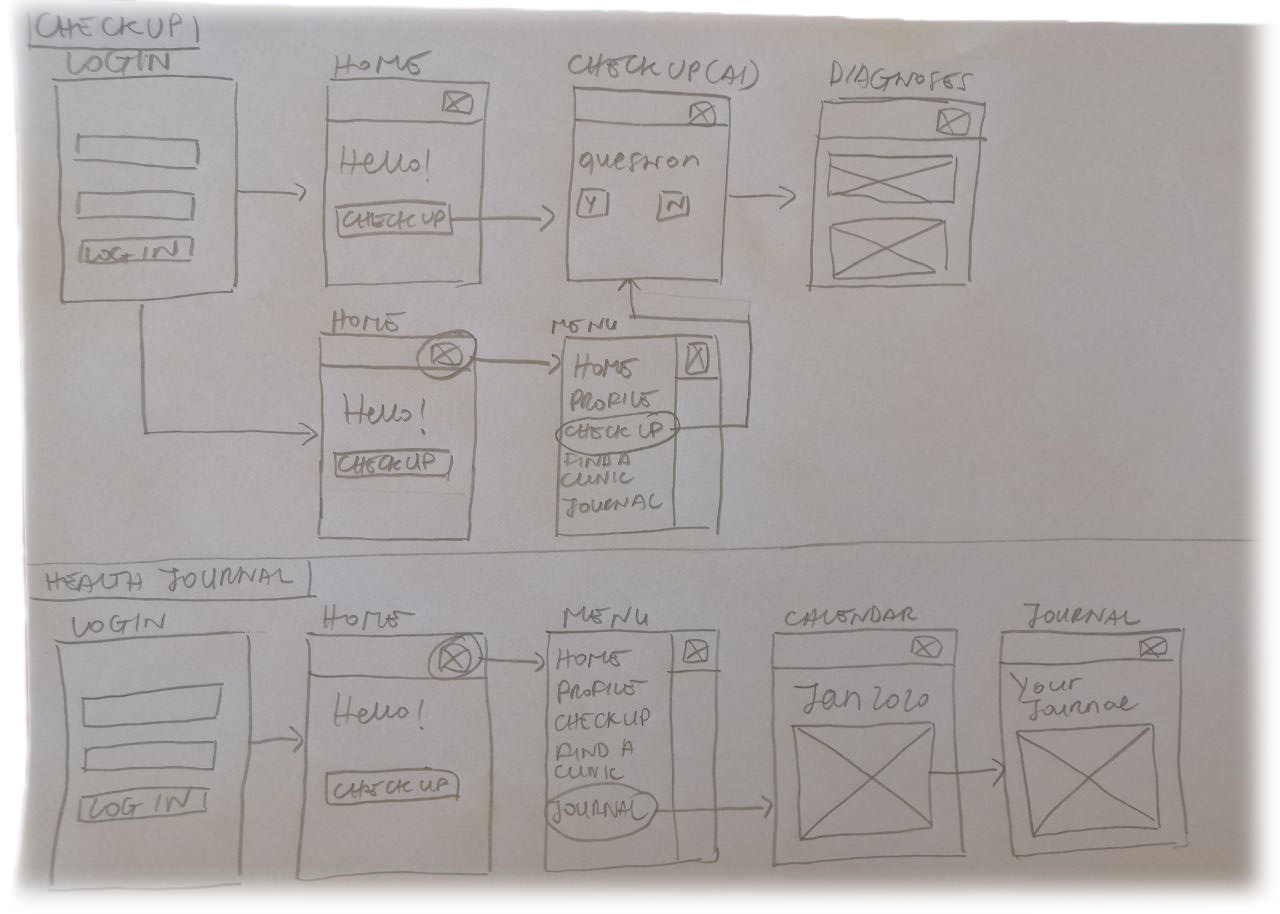 CHECKUP
LOGIN
LOG IN
HOME
Hello!
CHECKUP
CHECKUP(AI)
question
Y N
DIAGNOSES
HOME
Hello!
CHECKUP
MENU
HOME
PROFILE
CHECK UP
FIND A
CLINIC
JOURNAL
HEALTH JOURNAL
LOGIN
LOG IN
HOME
Hello!
CHECK UP
MENU
HOME
PROFILE
CHECKUP
FIND A
CLINIC
JOURNAL
CALENDAR
Jan 2020
JOURNAL
Your
Journal